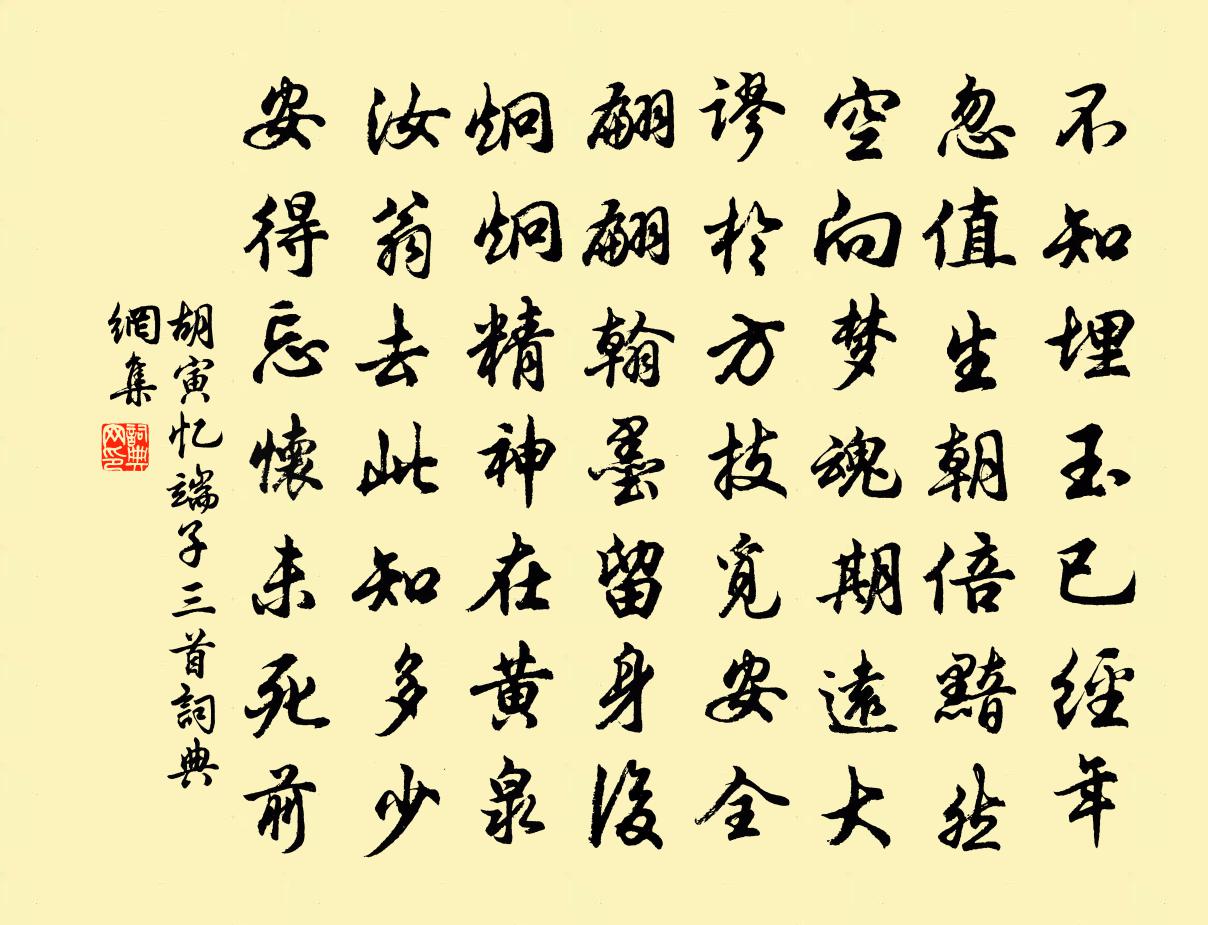 不知埋玉已經年
忽值生朝倍黯然
空向梦魂期遠大
謬於方技覓安全
翩翩翰墨留身後
炯炯精神在黃泉
汝翁去此知多少
安得忘懷未死前
胡寅忆端子三首詞典
網集
詞典
网印